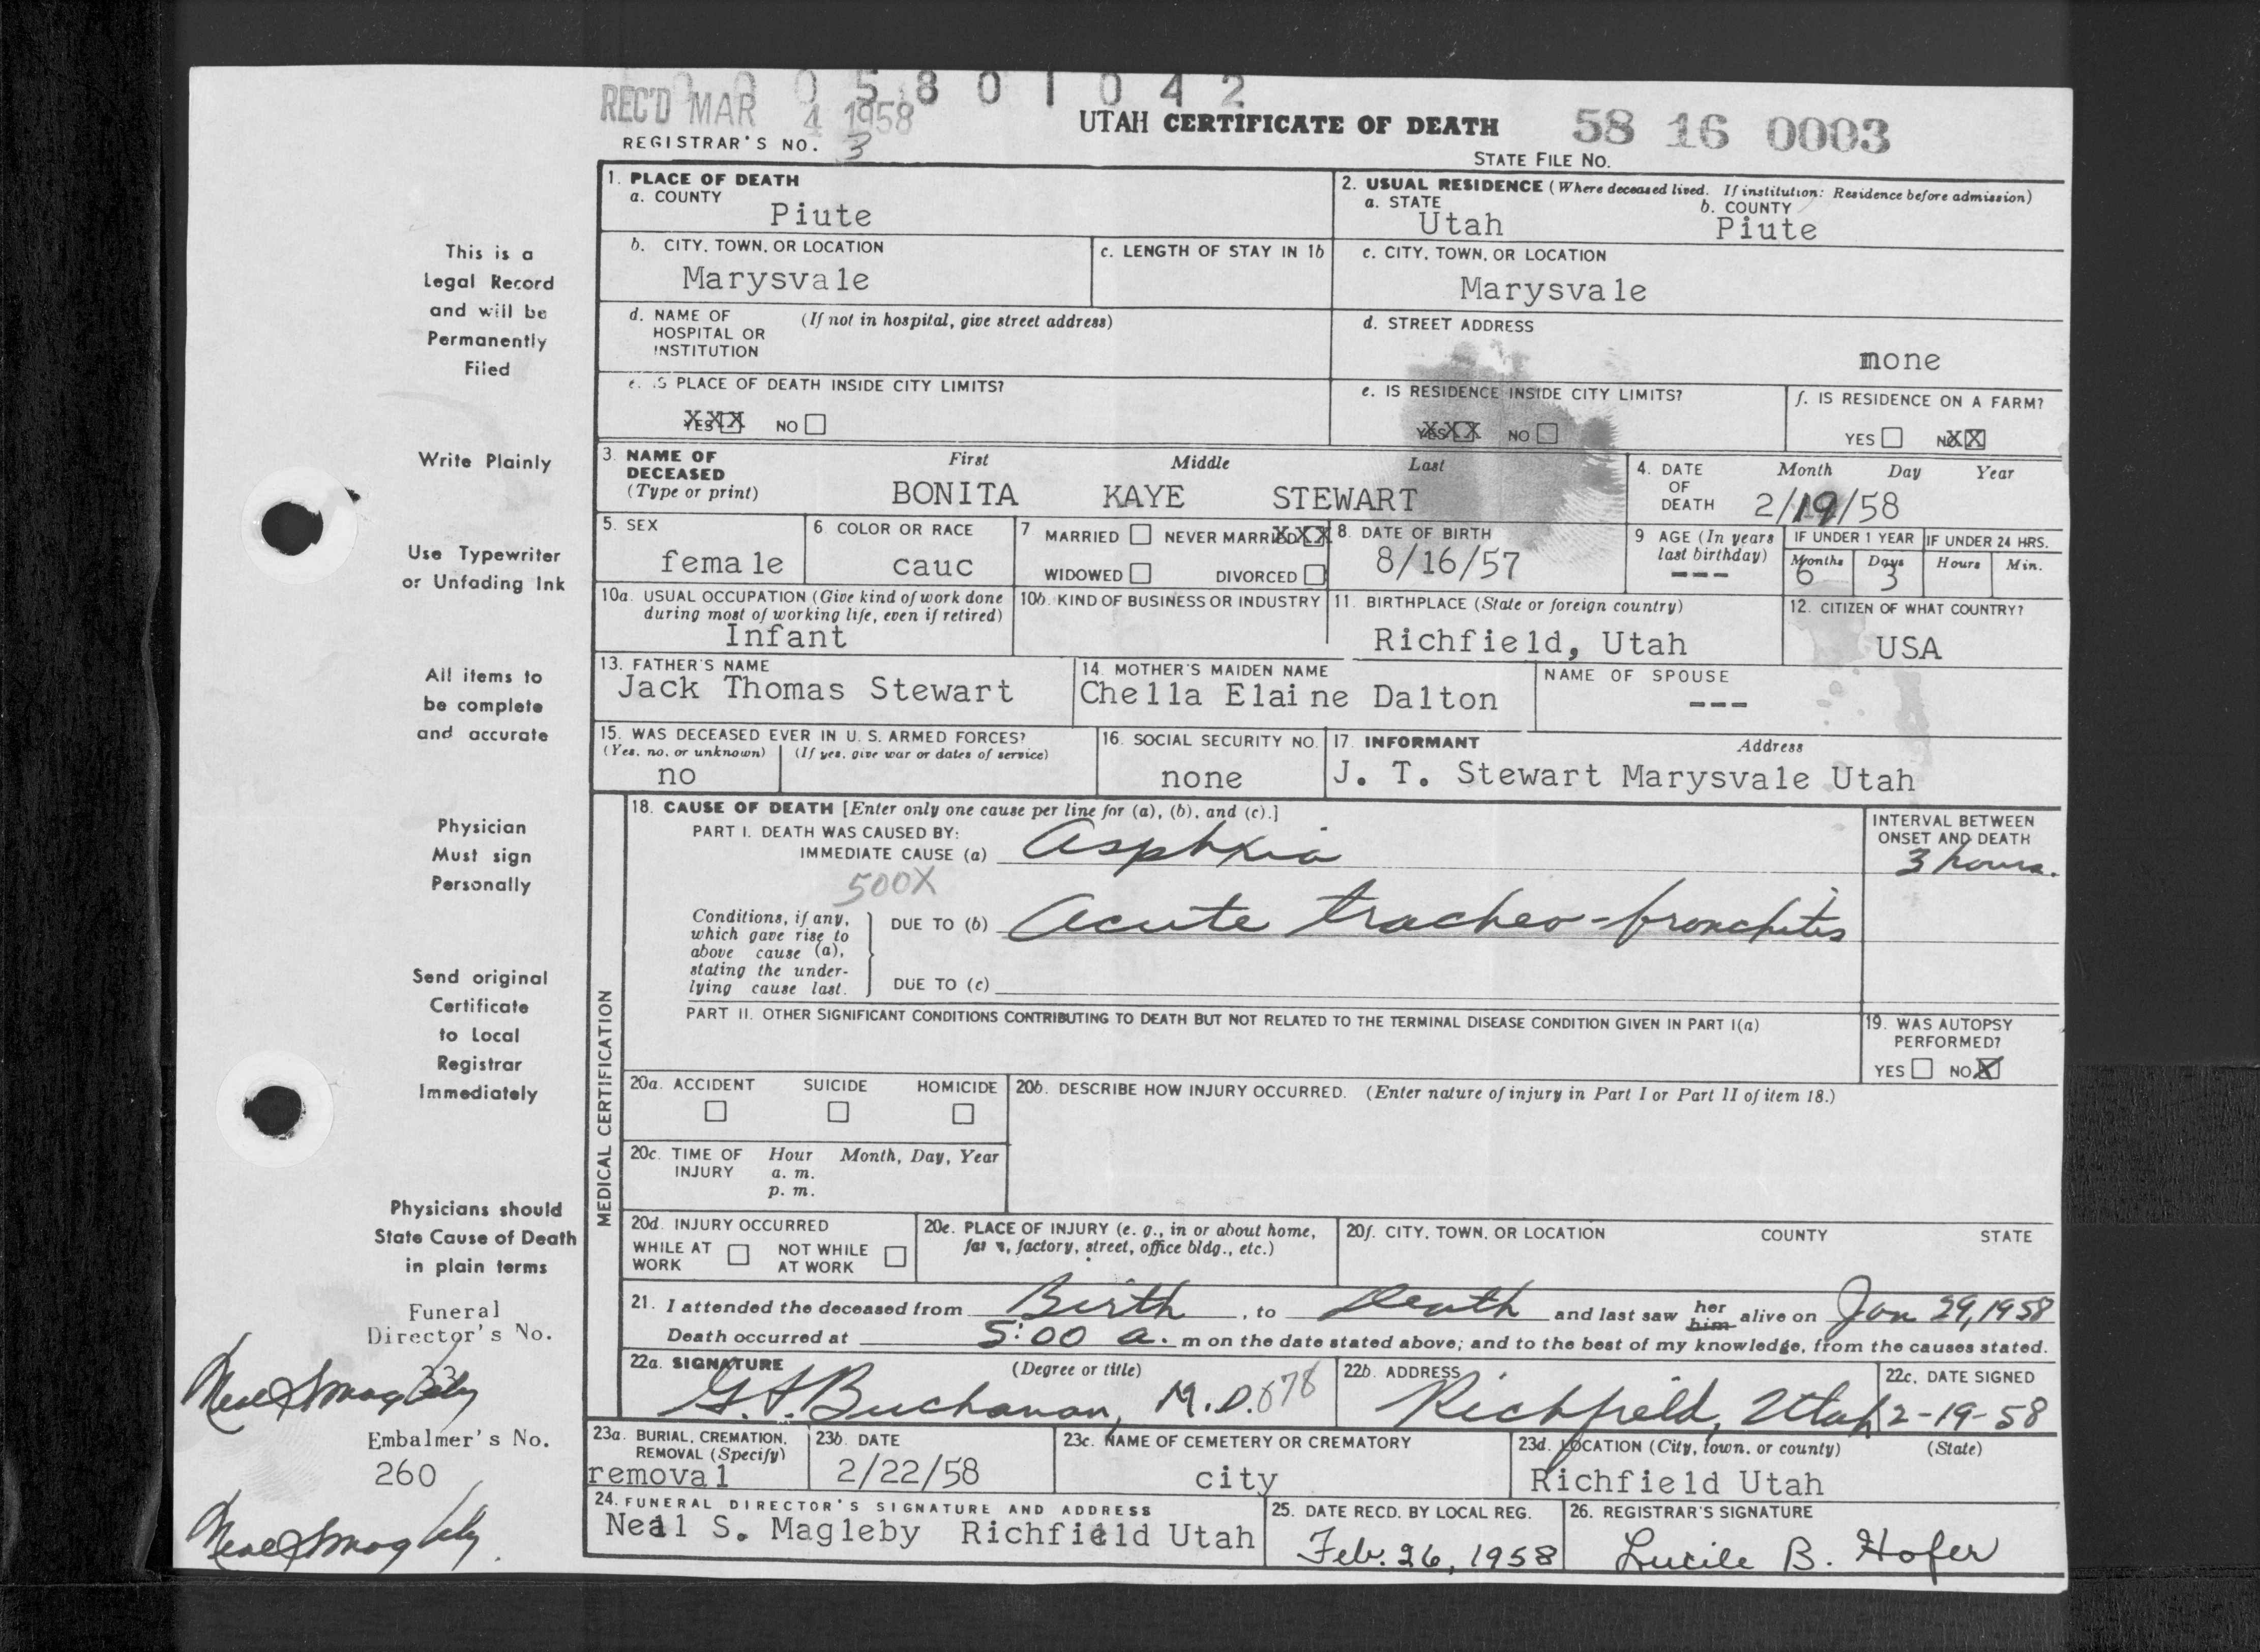 0 0 0 5 8 0 1 0 4 2
REC'D MAR 4 1958
UTAH CERTIFICATE OF DEATH
58 16 0003
REGISTRAR'S NO. 3
STATE FILE NO.
This is a
Legal Record
and will be
Permanently
Filed
Write Plainly
Use Typewriter
or Unfading Ink
All items to
be complete
and accurate
Physician
Must sign
Personally
Send original
Certificate
to Local
Registrar
Immediately
Physicians should
State Cause of Death
in plain terms
Funeral
Director's No.
Embalmer's No.
260
1. PLACE OF DEATH
a. COUNTY
Piute
2. USUAL RESIDENCE (Where deceased lived. If institution: Residence before admission)
a. STATE b. COUNTY
Utah Piute
b. CITY, TOWN, OR LOCATION
Marysvale
c. LENGTH OF STAY IN 1b
c. CITY, TOWN, OR LOCATION
Marysvale
d. NAME OF (If not in hospital, give street address)
HOSPITAL OR
INSTITUTION
d. STREET ADDRESS
mone
e. IS PLACE OF DEATH INSIDE CITY LIMITS?
YES XXX NO
e. IS RESIDENCE INSIDE CITY LIMITS?
YES XXX NO
f. IS RESIDENCE ON A FARM?
YES NO XX
3. NAME OF First Middle Last
DECEASED
(Type or print) BONITA KAYE STEWART
4. DATE Month Day Year
OF
DEATH 2/19/58
5. SEX
female
6. COLOR OR RACE
cauc
7 MARRIED NEVER MARRIED XXX
WIDOWED DIVORCED
8. DATE OF BIRTH
8/16/57
9 AGE (In years
last birthday)
---
IF UNDER 1 YEAR IF UNDER 24 HRS.
Months Days Hours Min.
6 3
10a. USUAL OCCUPATION (Give kind of work done
during most of working life, even if retired)
Infant
10b. KIND OF BUSINESS OR INDUSTRY
11. BIRTHPLACE (State or foreign country)
Richfield, Utah
12. CITIZEN OF WHAT COUNTRY?
USA
13. FATHER'S NAME
Jack Thomas Stewart
14. MOTHER'S MAIDEN NAME
Chella Elaine Dalton
NAME OF SPOUSE
---
15. WAS DECEASED EVER IN U. S. ARMED FORCES?
(Yes, no, or unknown) (If yes, give war or dates of service)
no
16. SOCIAL SECURITY NO.
none
17. INFORMANT Address
J. T. Stewart Marysvale Utah
MEDICAL CERTIFICATION
18. CAUSE OF DEATH [Enter only one cause per line for (a), (b), and (c).]
PART I. DEATH WAS CAUSED BY:
IMMEDIATE CAUSE (a) Asphxia
INTERVAL BETWEEN
ONSET AND DEATH
3 hours.
500X
Conditions, if any,
which gave rise to
above cause (a),
stating the under-
lying cause last.
DUE TO (b) Acute tracheo-bronchitis
DUE TO (c)
PART II. OTHER SIGNIFICANT CONDITIONS CONTRIBUTING TO DEATH BUT NOT RELATED TO THE TERMINAL DISEASE CONDITION GIVEN IN PART I(a)
19. WAS AUTOPSY
PERFORMED?
YES NO X
20a. ACCIDENT SUICIDE HOMICIDE
20b. DESCRIBE HOW INJURY OCCURRED. (Enter nature of injury in Part I or Part II of item 18.)
20c. TIME OF Hour Month, Day, Year
INJURY a. m.
p. m.
20d. INJURY OCCURRED
WHILE AT NOT WHILE
WORK AT WORK
20e. PLACE OF INJURY (e. g., in or about home,
farm, factory, street, office bldg., etc.)
20f. CITY, TOWN, OR LOCATION COUNTY STATE
21. I attended the deceased from Birth, to Death and last saw her him alive on Jan 29, 1958
Death occurred at 5:00 a. m on the date stated above; and to the best of my knowledge, from the causes stated.
22a. SIGNATURE (Degree or title)
G.S. Buchanan, M.D. 678
22b. ADDRESS
Richfield, Utah
22c. DATE SIGNED
2-19-58
23a. BURIAL, CREMATION,
REMOVAL (Specify)
removal
23b. DATE
2/22/58
23c. NAME OF CEMETERY OR CREMATORY
city
23d. LOCATION (City, town, or county) (State)
Richfield Utah
24. FUNERAL DIRECTOR'S SIGNATURE AND ADDRESS
Neal S. Magleby Richfield Utah
25. DATE RECD. BY LOCAL REG.
Feb. 26, 1958
26. REGISTRAR'S SIGNATURE
Lucile B. Hofer
Neal S Magleby
Neal S Magleby.